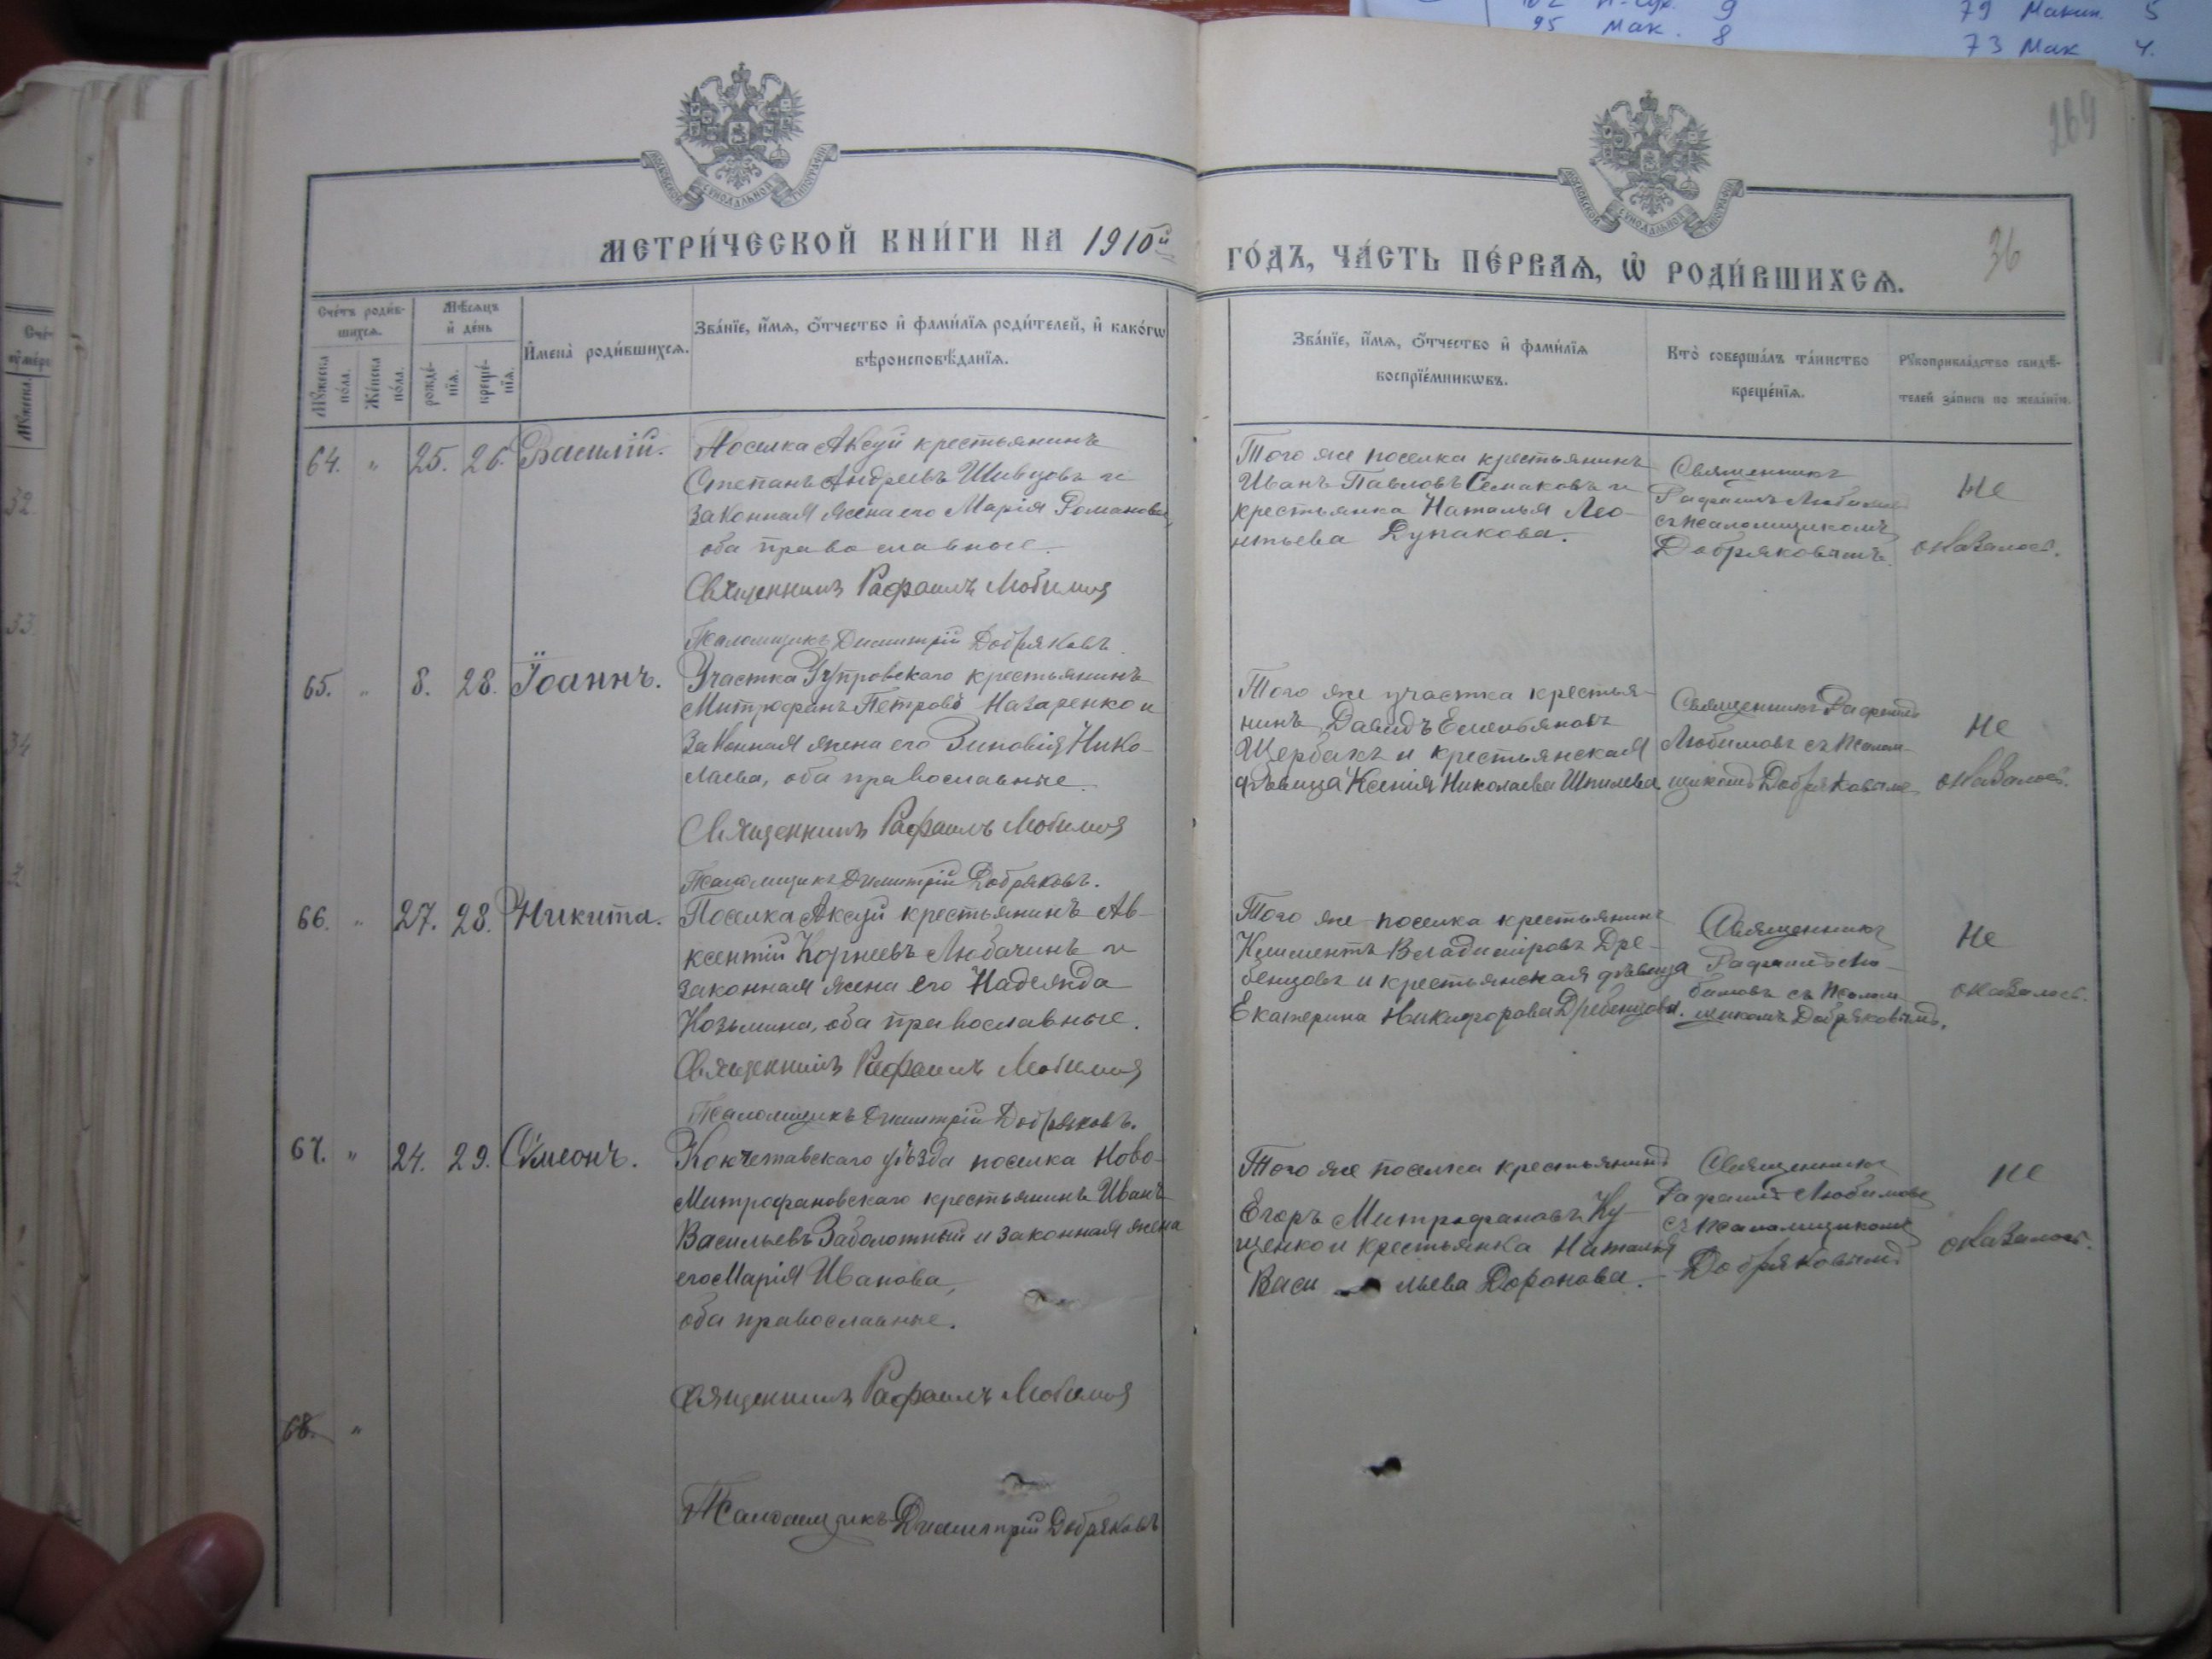 95 Мак. 8
79 Макин. 5
73 Мак 4.
269
36
МОСКОВСКОЙ СѴНОДАЛЬНОЙ ТИПОГРАФІИ
МОСКОВСКОЙ СѴНОДАЛЬНОЙ ТИПОГРАФІИ
МЕТРИ́ЧЕСКОЙ КНИ́ГИ НА 1910й
ГО́ДЪ, ЧА́СТЬ ПЕ́РВАѦ, Ѡ РОДИ́ВШИХСѦ.
Сче́тъ роди́в-
шихсѧ.
Мꙋ́жеска по́ла.
Же́нска по́ла.
Мѣ́сѧцъ
и҆ де́нь
рожде́-
нїѧ.
креще́-
нїѧ.
И҆мена̀ роди́вшихсѧ.
Зва́нїе, и҆́мѧ, ѻ҆́тчество и҆ фами́лїѧ роди́телей, и҆ како́гѡ
вѣроисповѣ́данїѧ.
Зва́нїе, и҆́мѧ, ѻ҆́тчество и҆ фами́лїѧ
воспрїе́мникѡвъ.
Кто̀ соверша́лъ та́инство
креще́нїѧ.
Рꙋкоприкла́дство свидѣ́-
телей за́писи по жела́нїю.
64. " 25. 26. Василій.
Поселка Аксуй крестьянинъ
Степанъ Андреевъ Шивцовъ и
законная жена его Марія Романова,
оба православные.
Священникъ Рафаилъ Любимовъ
Псаломщикъ Димитрій Добряковъ.
Того же поселка крестьянинъ
Иванъ Павловъ Семаковъ и
крестьянка Наталья Лео-
нтьева Дунакова.
Священникъ
Рафаилъ Любимовъ
съ псаломщикомъ
Добряковымъ.
Не
оказалось.
65. " 8. 28. Іоаннъ.
Участка крестьянинъ
Митрофанъ Петровъ Назаренко и
законная жена его Зиновія Нико-
лаева, оба православные.
Священникъ Рафаилъ Любимовъ
Псаломщикъ Димитрій Добряковъ.
Того же участка крестья-
нинъ Давидъ Емельяновъ
Щербакъ и крестьянская
дѣвица Ксенія Николаева Шпилева
Священникъ Рафаилъ
Любимовъ съ псалом-
щикомъ Добряковымъ
Не
оказалось.
66. " 27. 28. Никита.
Поселка Аксуй крестьянинъ Ав-
ксентій Корнеевъ Любачинъ и
законная жена его Надежда
Козьмина, оба православные.
Священникъ Рафаилъ Любимовъ
Псаломщикъ Димитрій Добряковъ.
Того же поселка крестьянинъ
Климентъ Владиміровъ Дре-
бенцовъ и крестьянская дѣвица
Екатерина Никифорова Дребенцова.
Священникъ
Рафаилъ Лю-
бимовъ съ псалом-
щикомъ Добряковымъ.
Не
оказалось.
67. " 24. 29. Сѵмеонъ.
Кокчетавскаго уѣзда поселка Ново-
Митрофановскаго крестьянинъ Иванъ
Васильевъ Заболотный и законная жена
его Марія Иванова,
оба православные.
Священникъ Рафаилъ Любимовъ
Псаломщикъ Димитрій Добряковъ
Того же поселка крестьянинъ
Егоръ Митрофановъ Ку-
щенко и крестьянка Наталья
Васильева Доронова.
Священникъ
Рафаилъ Любимовъ
съ псаломщикомъ
Добряковымъ
не
оказалось.
68. "